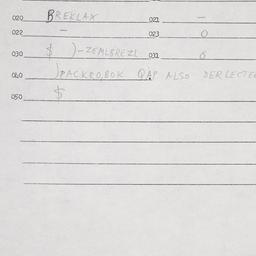 020 BREKLAX 021 –
022 – 023 0
030 $ )-ZEMLBREZL 031 6
040 )PACKRO,BOK QAP ALSO DERLECTE
050 $